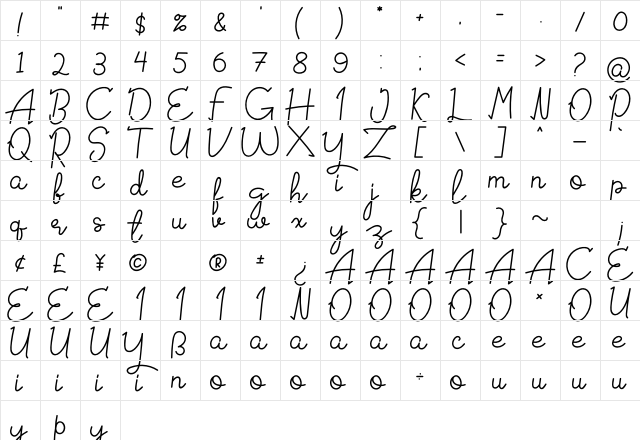 ! " # $ % & ' ( ) * + , - . / 0
1 2 3 4 5 6 7 8 9 : ; < = > ? @
A B C D E F G H I J K L M N O P
Q R S T U V W X Y Z [ \ ] ^ _ `
a b c d e f g h i j k l m n o p
q r s t u v w x y z { | } ~ ¡
¢ £ ¥ © ® ± ¿ A A A A A A C E
E E E I I I I N O O O O O × O U
U U U Y ß a a a a a a c e e e e
i i i i n o o o o o ÷ o u u u u
y þ y